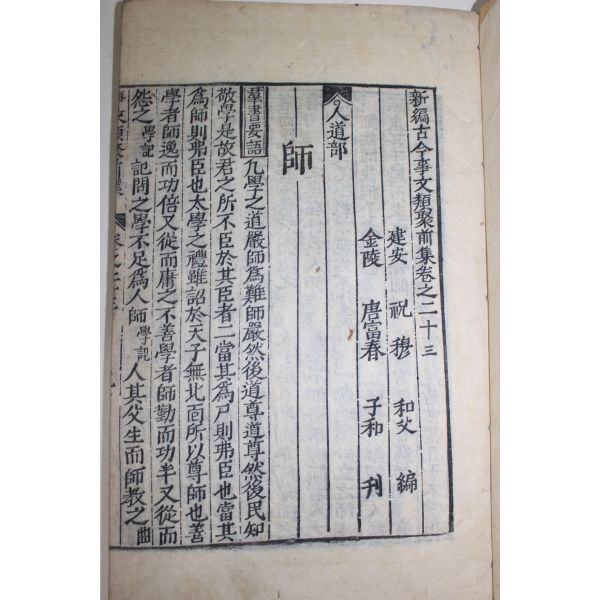 新編古今事文類聚前集卷之二十三
建安 祝穆 和父 編
金陵 唐富春 子和 刊
人道部
師
羣書要語 凡學之道嚴師爲難師嚴然後道尊道尊然後民知
敬學是故君之所不臣於其臣者二當其爲尸則弗臣也當其
爲師則弗臣也太學之禮雖詔於天子無北面所以尊師也善
學者師逸而功倍又從而庸之不善學者師勤而功半又從而
怨之學記 記問之學不足爲人師學記 人其父生而師教之曲